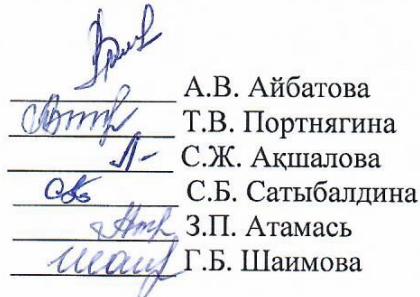 А.В. Айбатова
Т.В. Портнягина
С.Ж. Ақшалова
С.Б. Сатыбалдина
З.П. Атамась
Г.Б. Шаимова